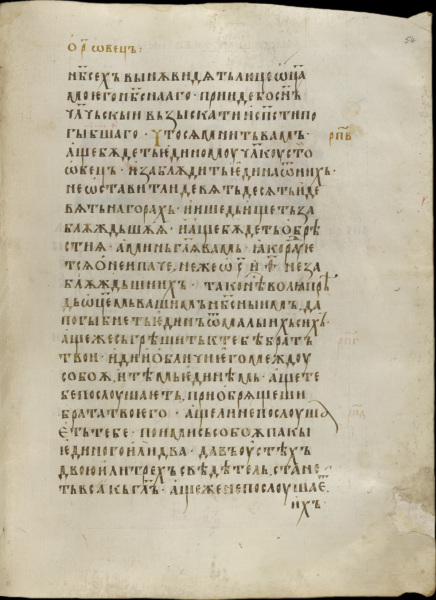 О р҃ ѡвецъ:
54
нб҃сехъ вынѫ видѧтъ лице ѡц҃а
моѥго нб҃снааго · приде бо сн҃ъ
чл҃чьскыи възыскати и сп҃сти по
гыбшаго · Что сѧ мнитъ вамъ ·
рп҃в
аще бѫдетъ ѥдиномоу чл҃коу сто
ѡвецъ · и заблѫдитъ ѥдина ѿ нихъ ·
не ѡставит ли девѧтьдесѧтъ и де
вѧть на горахъ · и шедъ ищетъ за
блѫждьшѧѧ · и аще бѫдетъ обрѣ
сти ѧ · аминь гл҃ѧ вамъ · ꙗко радꙋе
тсѧ о неи паче, неже ѡ ч҃ и ѳ҃ не за
блѫждьшихъ · тако нѣ волꙗ прѣ
дъ ѡц҃емъ вашимъ нб҃сныимъ, да
погыбнетъ ѥдинъ ѿ малыхъ сихъ ·
аще же съгрѣшитъ к тебѣ братъ
твои · иди и обличи ѥго междоу
собоѫ, и тѣмь ѥдинѣмь · аще те
бе послоушаѥтъ, приобрѧщеши
брата твоѥго · аще ли не послоуша
ѥтъ тебе · поими съ собоѫ пакы
ѥдиного или два · да въ оустѣхъ
двою или трехъ съвѣдѣтель, стане
тъ всѧкъ гл҃ъ · аще же не послоушаѥ҃
ихъ ·